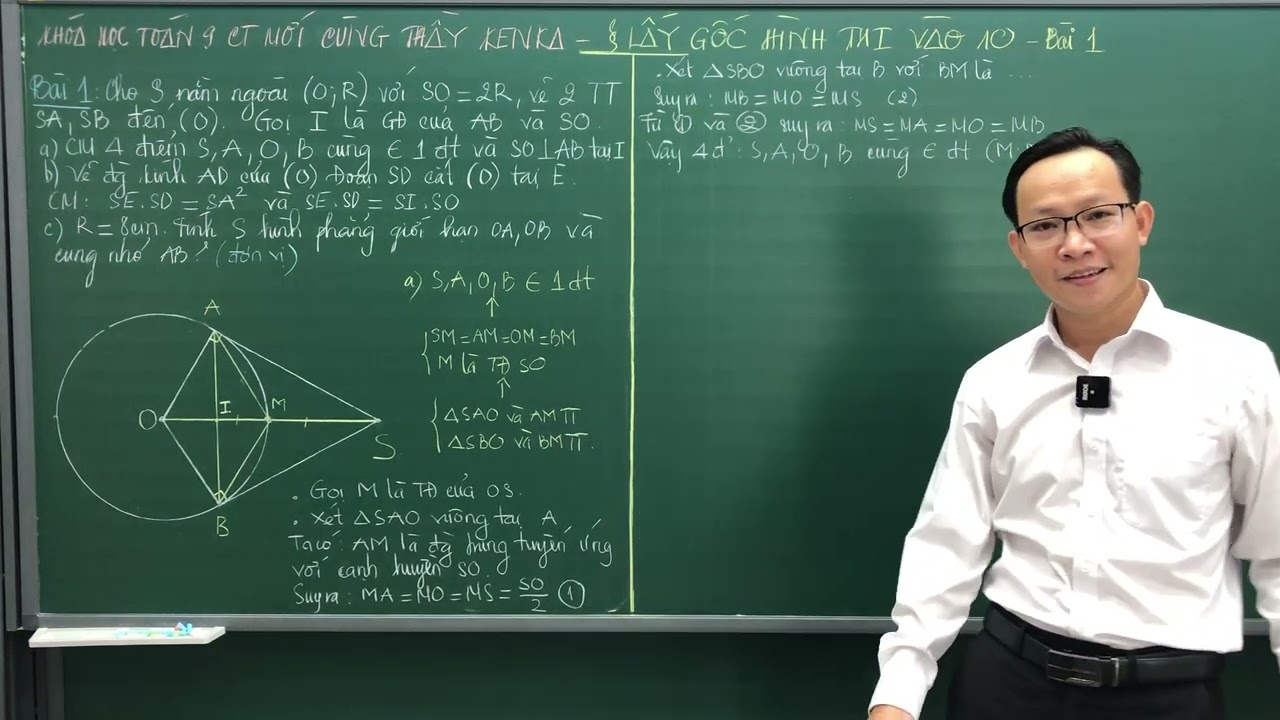 KHÓA HỌC TOÁN 9 CT MỚI CÙNG THẦY KENKA - § LẤY GỐC HÌNH THI VÀO 10 - Bài 1
Bài 1: Cho S nằm ngoài (O;R) với SO = 2R, vẽ 2 TT
SA, SB đến (O). Gọi I là GĐ của AB và SO.
a) CM 4 điểm S, A, O, B cùng ∈ 1 đt và SO ⊥ AB tại I
b) Vẽ đg kính AD của (O). Đoạn SD cắt (O) tại E.
CM: SE.SD = SA² và SE.SD = SI.SO
c) R = 8cm. Tính S hình phẳng giới hạn OA, OB và
cung nhỏ AB? (đơn vị)
a) S, A, O, B ∈ 1 đt
↑
SM = AM = OM = BM
M là TĐ SO
↑
ΔSAO và AM TT
ΔSBO và BM TT.
A
O
I
M
S
B
. Gọi M là TĐ của OS.
. Xét ΔSAO vuông tại A
Ta có: AM là đg trung tuyến ứng
với cạnh huyền SO.
Suy ra: MA = MO = MS = SO/2 (1)
. Xét ΔSBO vuông tại B với BM là ...
Suy ra: MB = MO = MS (2)
Từ (1) và (2) suy ra: MS = MA = MO = MB
Vậy 4 đ': S, A, O, B cùng ∈ đt (M;